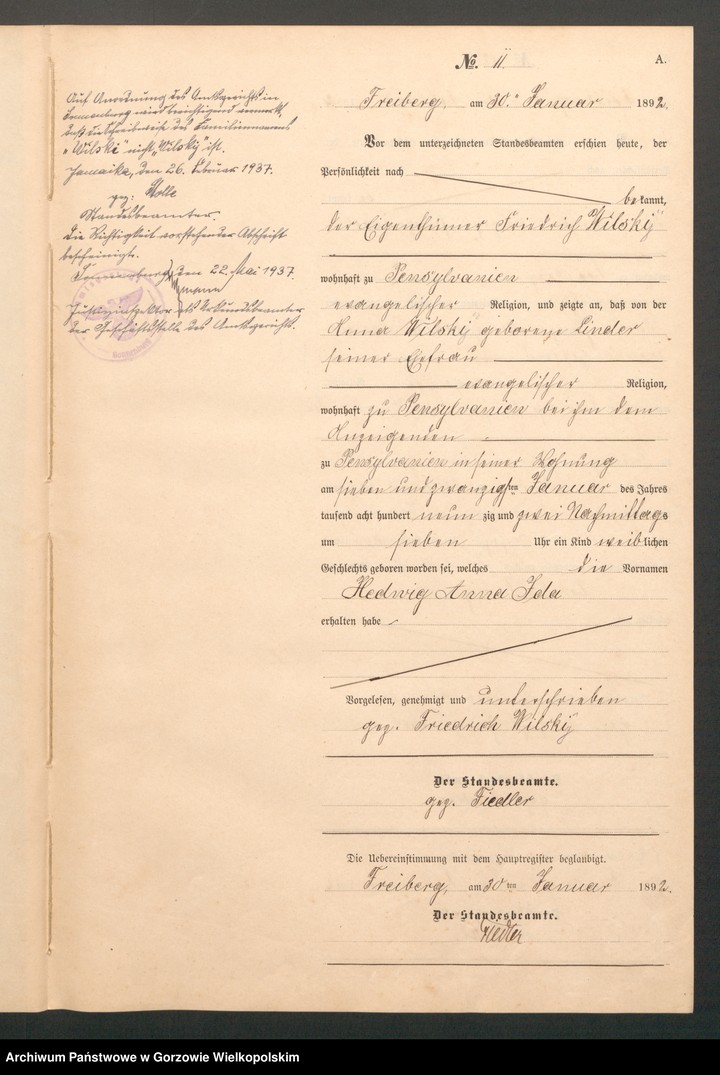 No. 11
A.
Freiberg, am 30. Januar 1892.
Vor dem unterzeichneten Standesbeamten erschien heute, der
Persönlichkeit nach
bekannt,
der Eigenthümer Friedrich Wilskÿ
wohnhaft zu Pensylvanien
evangelischer Religion, und zeigte an, daß von der
Anna Wilskÿ geborene Linder
seiner Ehefrau
evangelischer Religion,
wohnhaft zu Pensylvanien bei ihm dem
Anzeigenden
zu Pensylvanien in seiner Wohnung
am sieben und zwanzigsten Januar des Jahres
tausend acht hundert neunzig und zwei Nachmittags
um sieben Uhr ein Kind weiblichen
Geschlechts geboren worden sei, welches die Vornamen
Hedwig Anna Ida
erhalten habe
Vorgelesen, genehmigt und unterschrieben
gez. Friedrich Wilskÿ
Der Standesbeamte.
gez. Fiedler
Die Uebereinstimmung mit dem Hauptregister beglaubigt.
Freiberg, am 30ten Januar 1892.
Der Standesbeamte.
Fiedler
Auf Anordnung des Amtsgerichts in
Sonnenburg wird berichtigend vermerkt,
daß die Schreibweise des Familiennamens
"Wilski" nicht "Wilsky" ist.
Jamaika, den 26. Februar 1937.
gez: Nolle
Standesbeamter.
Die Richtigkeit vorstehender Abschrift
bescheinigt.
Sonnenburg, den 22. Mai 1937.
Justizinspektor als Urkundsbeamter
der Geschäftsstelle des Amtsgerichts.
Archiwum Państwowe w Gorzowie Wielkopolskim